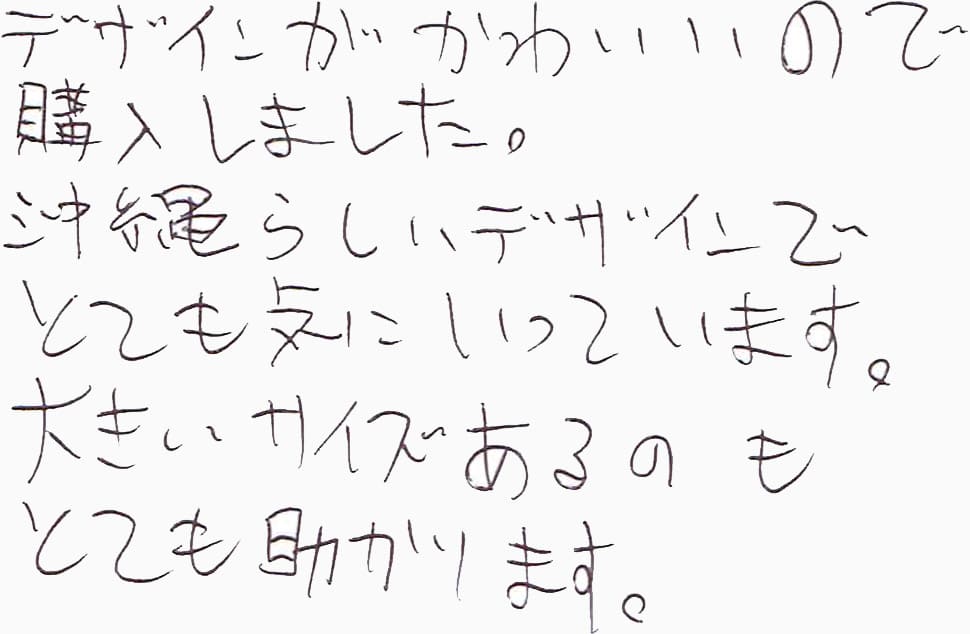 デザインがかわいいので
購入しました。
沖縄らしいデザインで
とても気にいっています。
大きいサイズあるのも
とても助かります。